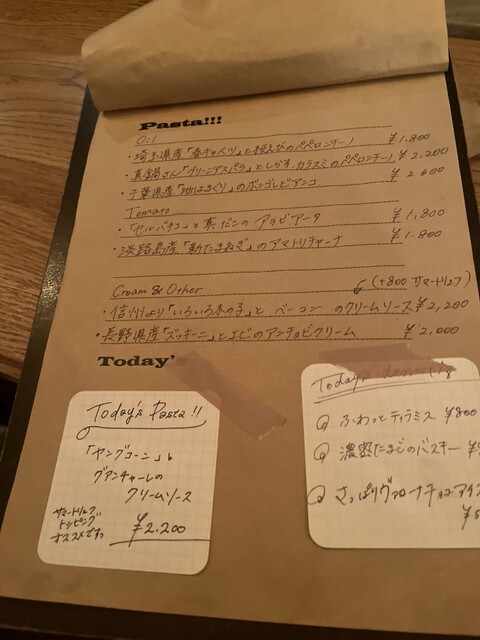 Pasta!!!
Oil
・埼玉県産「春キャベツ」と桜えびのペペロンチーノ ¥1,800
・真鍋さん「グリーンアスパラ」としらす、カラスミのペペロンチーノ ¥2,200
・千葉県産「地はまぐり」のボンゴレビアンコ ¥2,600
Tomato
・「セルバチコ」と真だこのアラビアータ ¥1,800
・淡路島産「新たまねぎ」のアマトリチャーナ ¥1,800
Cream & Other (+800 サマートリュフ)
・信州より「いろいろ木の子」とベーコンのクリームソース ¥2,200
・長野県産「ズッキーニ」とエビのアンチョビクリーム ¥2,000
Today'
Today's Pasta!!
「ヤングコーン」と
グアンチャーレの
クリームソース
サマートリュフ
トッピング
オススメです。
¥2.200
Today's desserts
ふわっとティラミス ¥800
濃密たまごのバスキー
さっぱりヴァローナチョコアイス